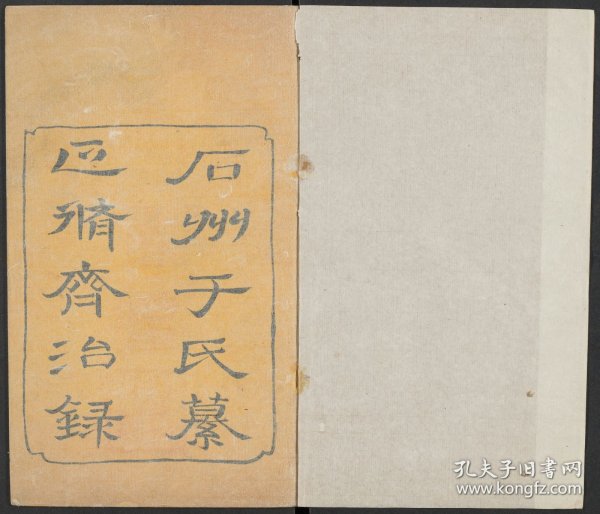 石州于氏纂
正脩齊治録
孔夫子旧书网
www.kongfz.com